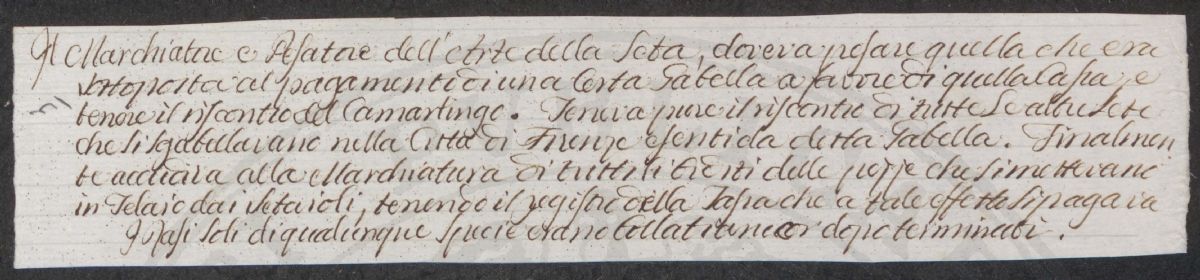 Il Marchiatore e Pesatore dell'Arte della Seta, doveva pesare quella che era
sottoposta al pagamento di una certa Gabella a favore di quella Cassa, e
tenere il riscontro del Camarlingo. Teneva pure il riscontro di tutte le altre sete
che si sgabellavano nella Città di Firenze esenti da detta Gabella. Finalmen
te accudiva alla Marchiatura di tutti li Orditi delle pezze che si mettevano
in Telaio dai Setaroli, tenendo il registro della Tassa che a tale effetto si pagava
I Rasi soli di qualunque specie erano bollati ancor dopo terminati.